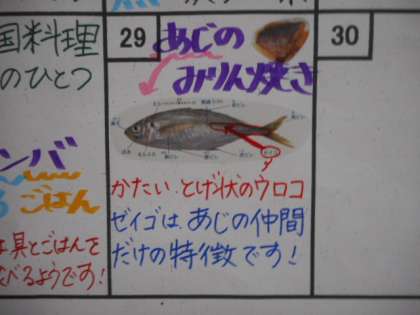 国料理
のひとつ
ンバ
ごはん
具とごはんを
べるようです!
29
あじの
みりん焼き
ゼイゴ
かたい、とげ状のウロコ
ゼイゴは、あじの仲間
だけの特徴です!
30